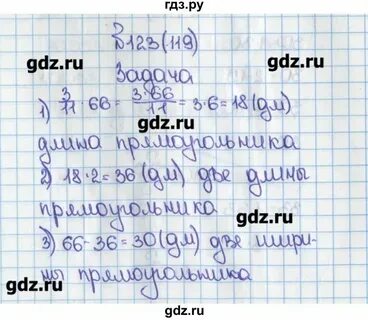 гдз.ру
№123(119)
gdz.ru gdz.ru
Задача
1) 3/11 · 66 = 3·66/11 = 3·6 = 18 (дм)
gdz.ru gdz.ru
длина прямоугольника
2) 18·2 = 36 (дм) две длины
gdz.ru gdz.ru
прямоугольника
3) 66-36 = 30 (дм) две шири-
gdz.ru gdz.ru
ны прямоугольника
gdz.ru